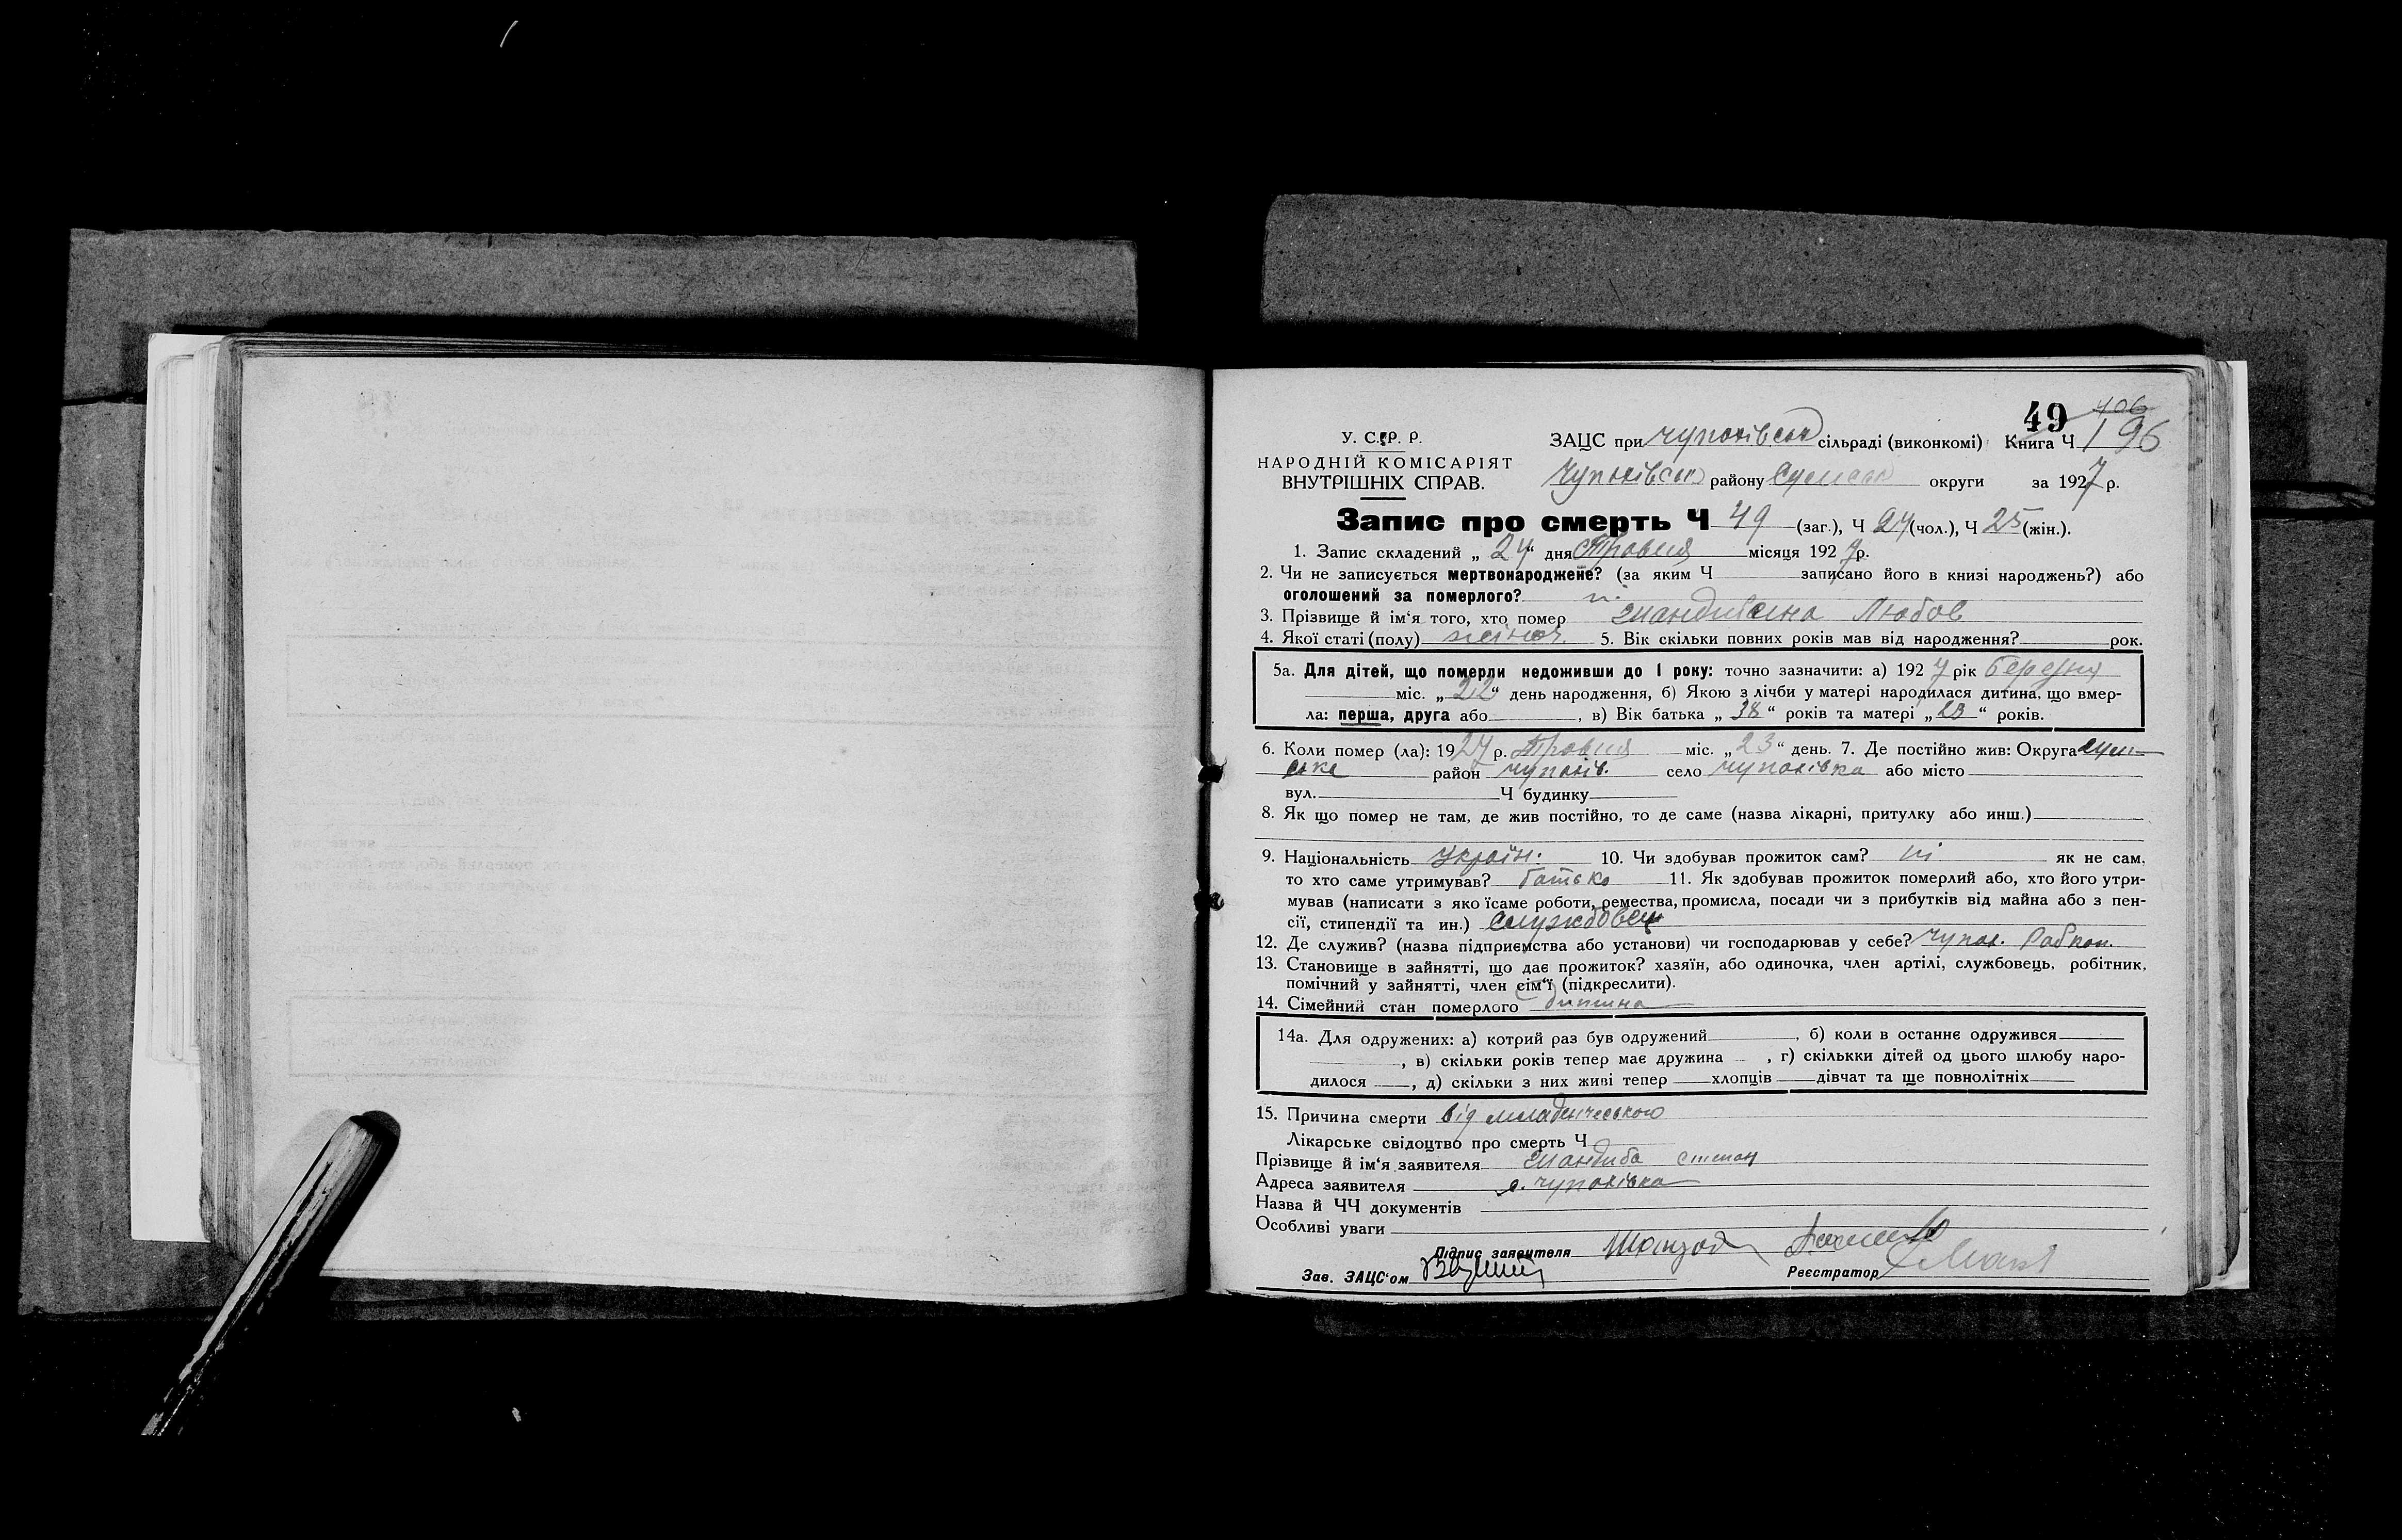 49 106
У. С. Р. Р. ЗАЦС при Чупахівськ сільраді (виконкомі) Книга Ч 1 96
НАРОДНІЙ КОМІСАРІЯТ
ВНУТРІШНІХ СПРАВ. Чупахівськ району Сумськ округи за 1927 р.
Запис про смерть Ч 49 (заг.), Ч 24 (чол.), Ч 25 (жін.).
1. Запис складений „ 24 “ дня Травня місяця 1927 р.
2. Чи не записується мертвонароджене? (за яким Ч записано його в книзі народжень?) або
оголошений за померлого?
3. Прізвище й ім‘я того, хто помер Любов
4. Якої статі (полу) жіноч. 5. Вік скільки повних років мав від народження? рок.
5а. Для дітей, що померли недоживши до 1 року: точно зазначити: а) 1927 рік березня
міс. „ 22 “ день народження, б) Якою з лічби у матері народилася дитина, що вмер-
ла: перша, друга або , в) Вік батька „ 38 “ років та матері „ 23 “ років.
6. Коли помер (ла): 1927 р. Травня міс. „ 23 “ день. 7. Де постійно жив: Округа Сум-
ське район Чупахів. село Чупахівка або місто
вул. Ч будинку
8. Як що помер не там, де жив постійно, то де саме (назва лікарні, притулку або инш.)
9. Національність Україн. 10. Чи здобував прожиток сам? ні як не сам,
то хто саме утримував? батько 11. Як здобував прожиток померлий або, хто його утри-
мував (написати з яко їсаме роботи, ремества, промисла, посади чи з прибутків від майна або з пен-
сії, стипендії та ин.) службовец
12. Де служив? (назва підприємства або установи) чи господарював у себе? Чупах.
13. Становище в зайнятті, що дає прожиток? хазяїн, або одиночка, член артілі, службовець, робітник,
помічний у зайнятті, член сім‘ї (підкреслити).
14. Сімейний стан померлого дитина
14а. Для одружених: а) котрий раз був одружений , б) коли в останнє одружився
, в) скільки років тепер має дружина , г) скількки дітей од цього шлюбу наро-
дилося , д) скільки з них живі тепер хлопців дівчат та ще повнолітніх
15. Причина смерти від младенческого
Лікарське свідоцтво про смерть Ч
Прізвище й ім‘я заявителя Степан
Адреса заявителя с. Чупахівка
Назва й ЧЧ документів
Особливі уваги
Підпис заявителя
Зав. ЗАЦС‘ом Реєстратор